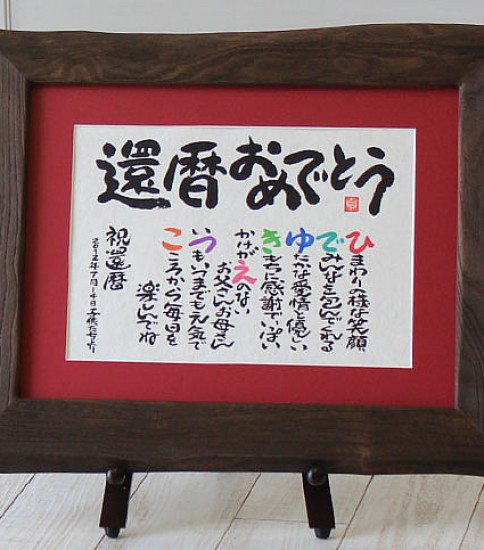 還暦おめでとう
ひまわりの様な笑顔
でみんなを包んでくれる
ゆたかな愛情と優しい
きもちに感謝でいっぱい
かけがえのない
お父さんお母さん
いつもいつまでも元気で
こころから毎日を
楽しんでね
祝還暦